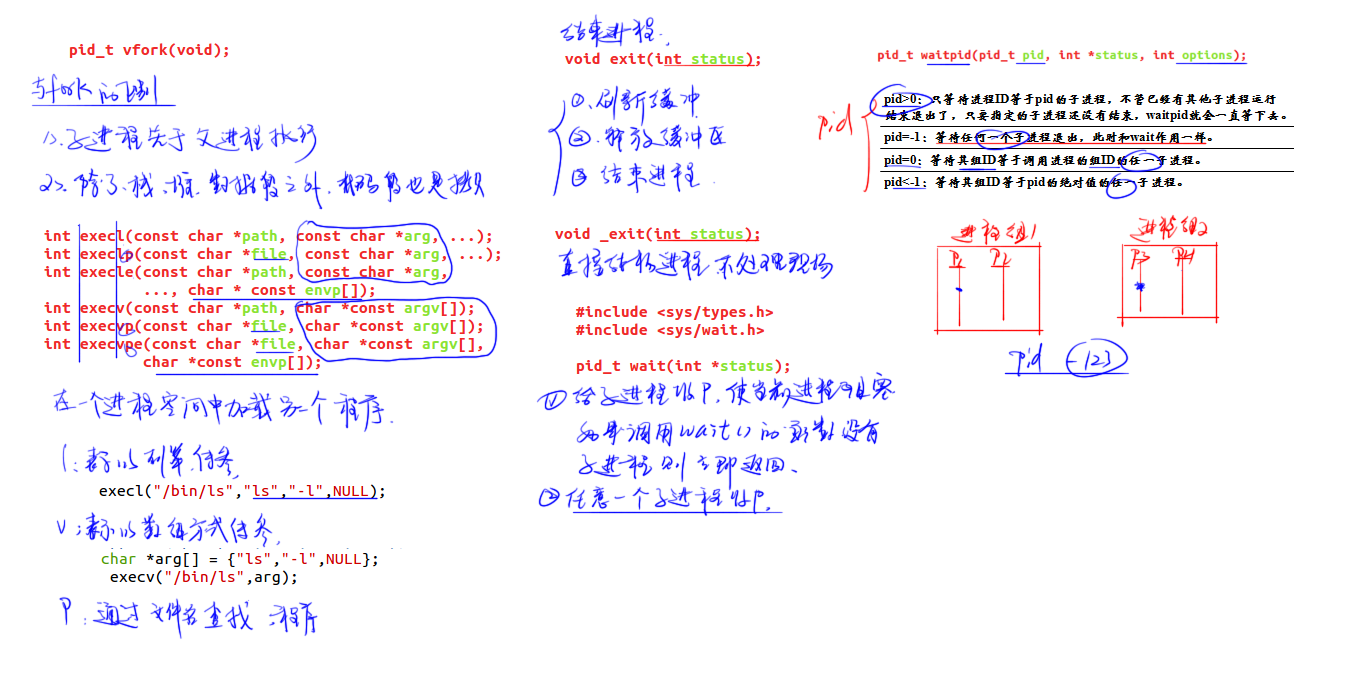 pid_t vfork(void);
与fork的区别
1>.子进程先于父进程执行
2>.除了栈、堆、数据段之外,代码段也是拷贝
int execl(const char *path, const char *arg, ...);
int execlp(const char *file, const char *arg, ...);
int execle(const char *path, const char *arg,
..., char * const envp[]);
int execv(const char *path, char *const argv[]);
int execvp(const char *file, char *const argv[]);
int execvpe(const char *file, char *const argv[],
char *const envp[]);
在一个进程空间中加载另一个程序.
l:表示以列举传参,
execl("/bin/ls","ls","-l",NULL);
v:表示以数组方式传参,
char *arg[] = {"ls","-l",NULL};
execv("/bin/ls",arg);
P:通过文件名查找程序
结束进程,
void exit(int status);
①.刷新缓冲
②.释放缓冲区
③结束进程.
void _exit(int status);
直接结束进程不处理现场
#include <sys/types.h>
#include <sys/wait.h>
pid_t wait(int *status);
①给子进程收尸,使当前进程阻塞
如果调用wait()的函数没有
子进程则立即返回、
②任意一个子进程收尸,
pid_t waitpid(pid_t pid, int *status, int options);
pid
pid>0:只等待进程ID等于pid的子进程,不管已经有其他子进程运行
结束退出了,只要指定的子进程还没有结束,waitpid就会一直等下去。
pid=-1:等待任何一个子进程退出,此时和wait作用一样。
pid=0:等待其组ID等于调用进程的组ID的任一子进程。
pid<-1:等待其组ID等于pid的绝对值的任一子进程。
进程组1 进程组2
P1 P2 P3 P4
pid -123